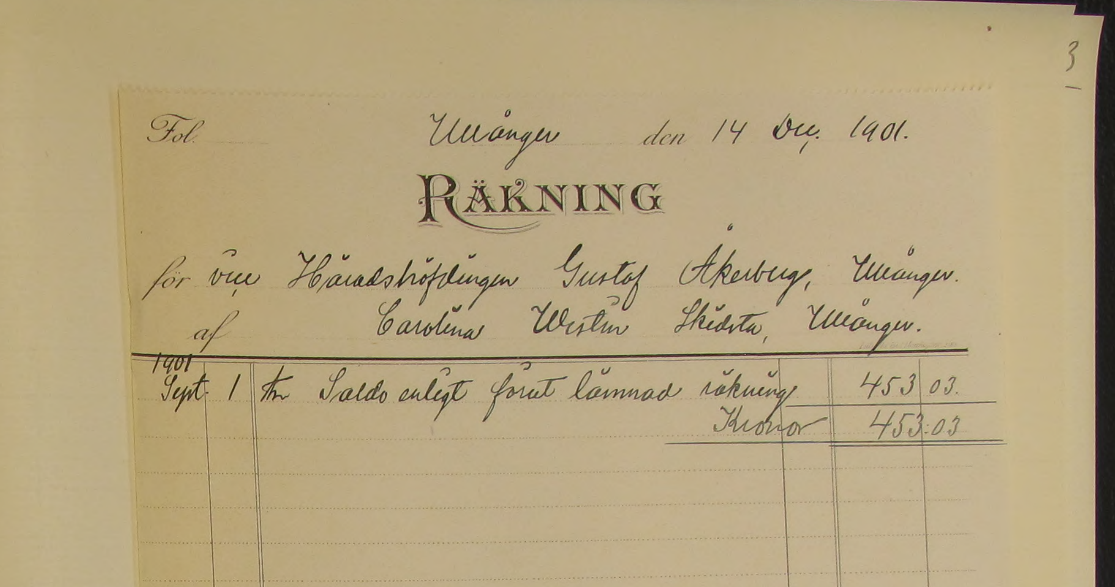 3
Fol. Ullånger den 14 Dec. 1901.
RÄKNING
för vice Häradshöfdingen Gustaf Åkerberg, Ullånger.
af Carolina Westin Skedsta, Ullånger.
1901
Sept. 1 Saldo enligt förut lämnad räkning 453 03.
Kronor 453:03